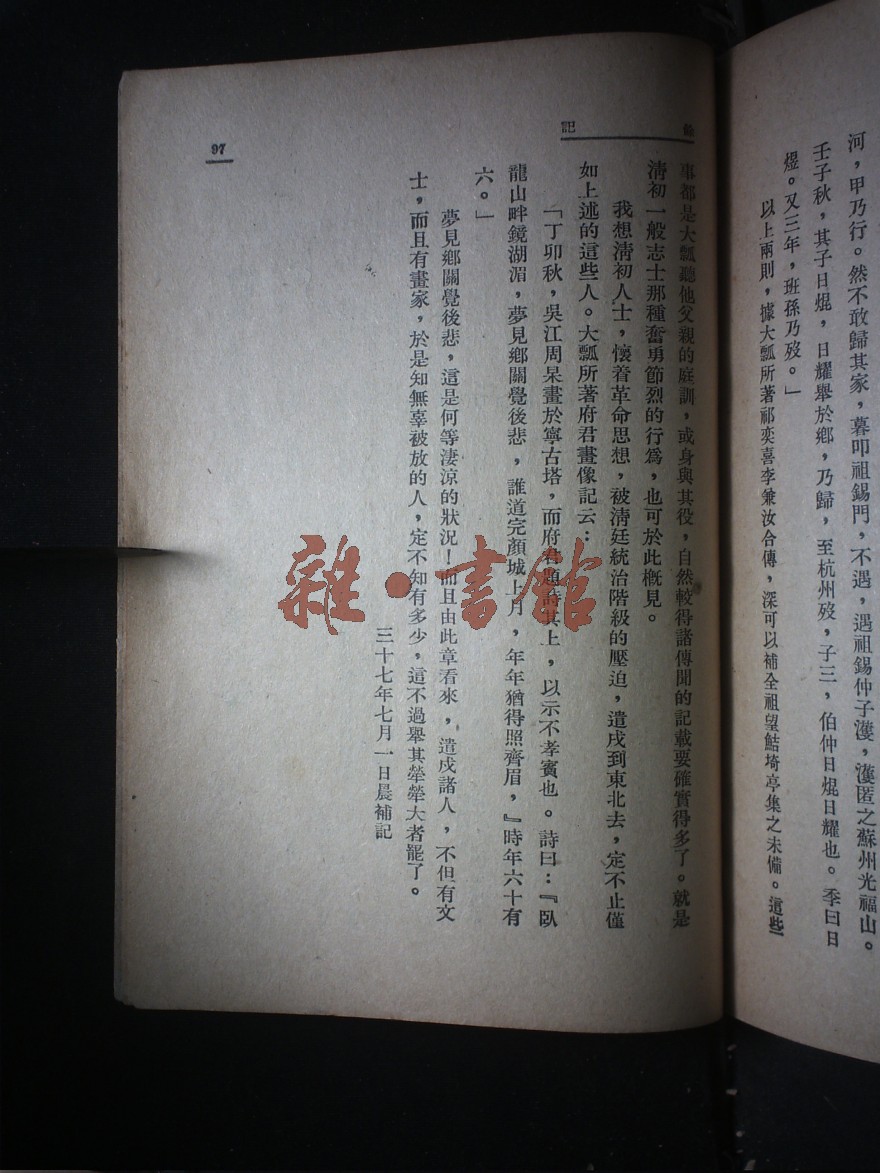 河，甲乃行。然不敢歸其家，暮叩祖錫門，不遇，遇祖錫仲子濩，濩匿之蘇州光福山。
壬子秋，其子日焜，日耀舉於鄉，乃歸，至杭州歿，子三，伯仲日焜日耀也。季曰日
煜。又三年，班孫乃歿。」
以上兩則，據大瓢所著祁奕喜李兼汝合傳，深可以補全祖望鮚埼亭集之未備。這些
記
事都是大瓢聽他父親的庭訓，或身與其役，自然較得諸傳聞的記載要確實得多了。就是
清初一般志士那種奮勇節烈的行爲，也可於此概見。
我想清初人士，懷着革命思想，被清廷統治階級的壓迫，遣戍到東北去，定不止僅
如上述的這些人。大瓢所著府君畫像記云：
「丁卯秋，吳江周杲畫於寧古塔，而府君題詩其上，以示不孝賓也。詩曰：『臥
龍山畔鏡湖湄，夢見鄉關覺後悲，誰道完顏城上月，年年猶得照齊眉，』時年六十有
六。」
夢見鄉關覺後悲，這是何等凄涼的狀況！而且由此章看來，遣戍諸人，不但有文
士，而且有畫家，於是知無辜被放的人，定不知有多少，這不過舉其犖犖大者罷了。
三十七年七月一日晨補記
97
雜·書館